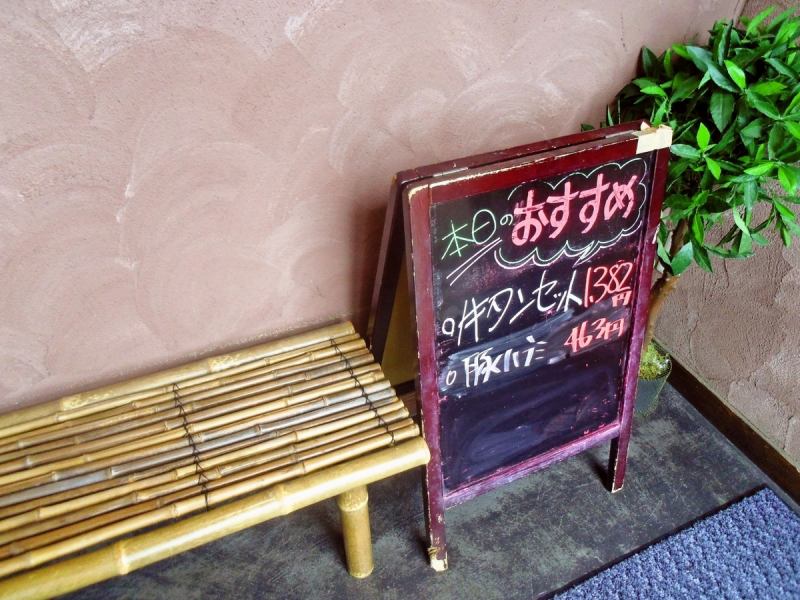 本日のおすすめ
○牛タンセット 1,382円
○豚ハラミ 463円